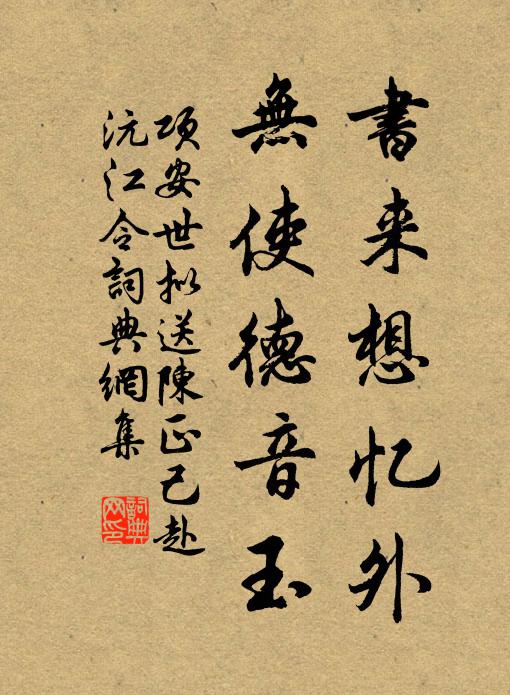 書来想忆外
無使德音玉
项安世拟送陳正己赴
沅江令詞典網集
詞典
网印